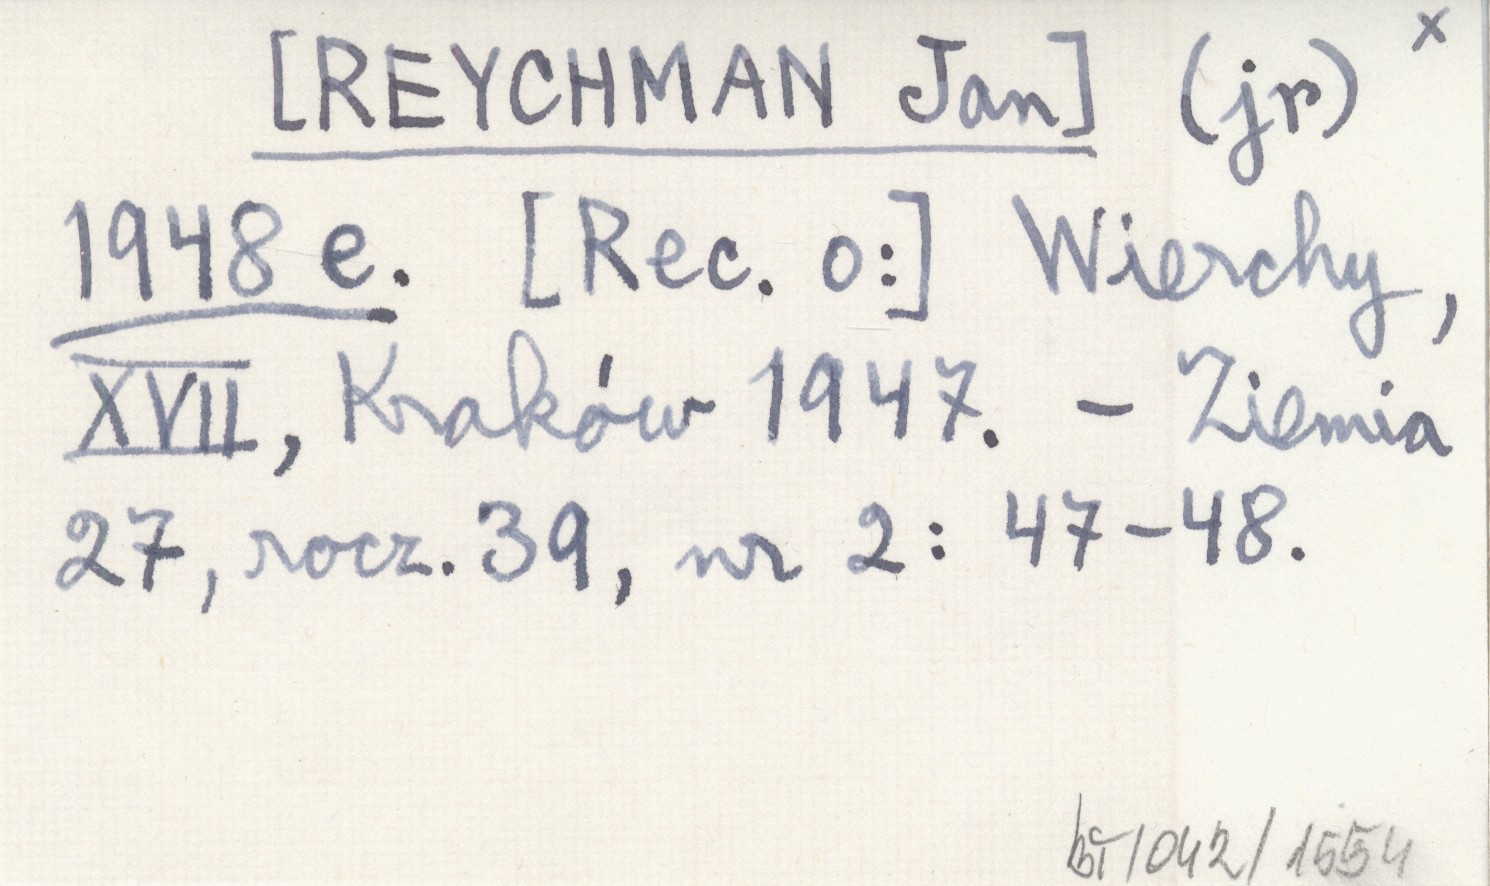 [REYCHMAN Jan] (jr) x
1948 e. [Rec. o:] Wierchy,
XVII, Kraków 1947. – Ziemia
27, rocz. 39, nr 2: 47–48.
/042/1554